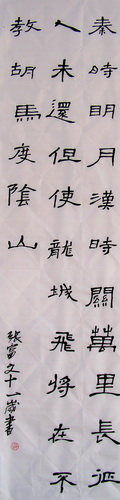 秦時明月漢時關萬里長征
人未還但使龍城飛將在不
教胡馬度陰山
張富文十一歲書